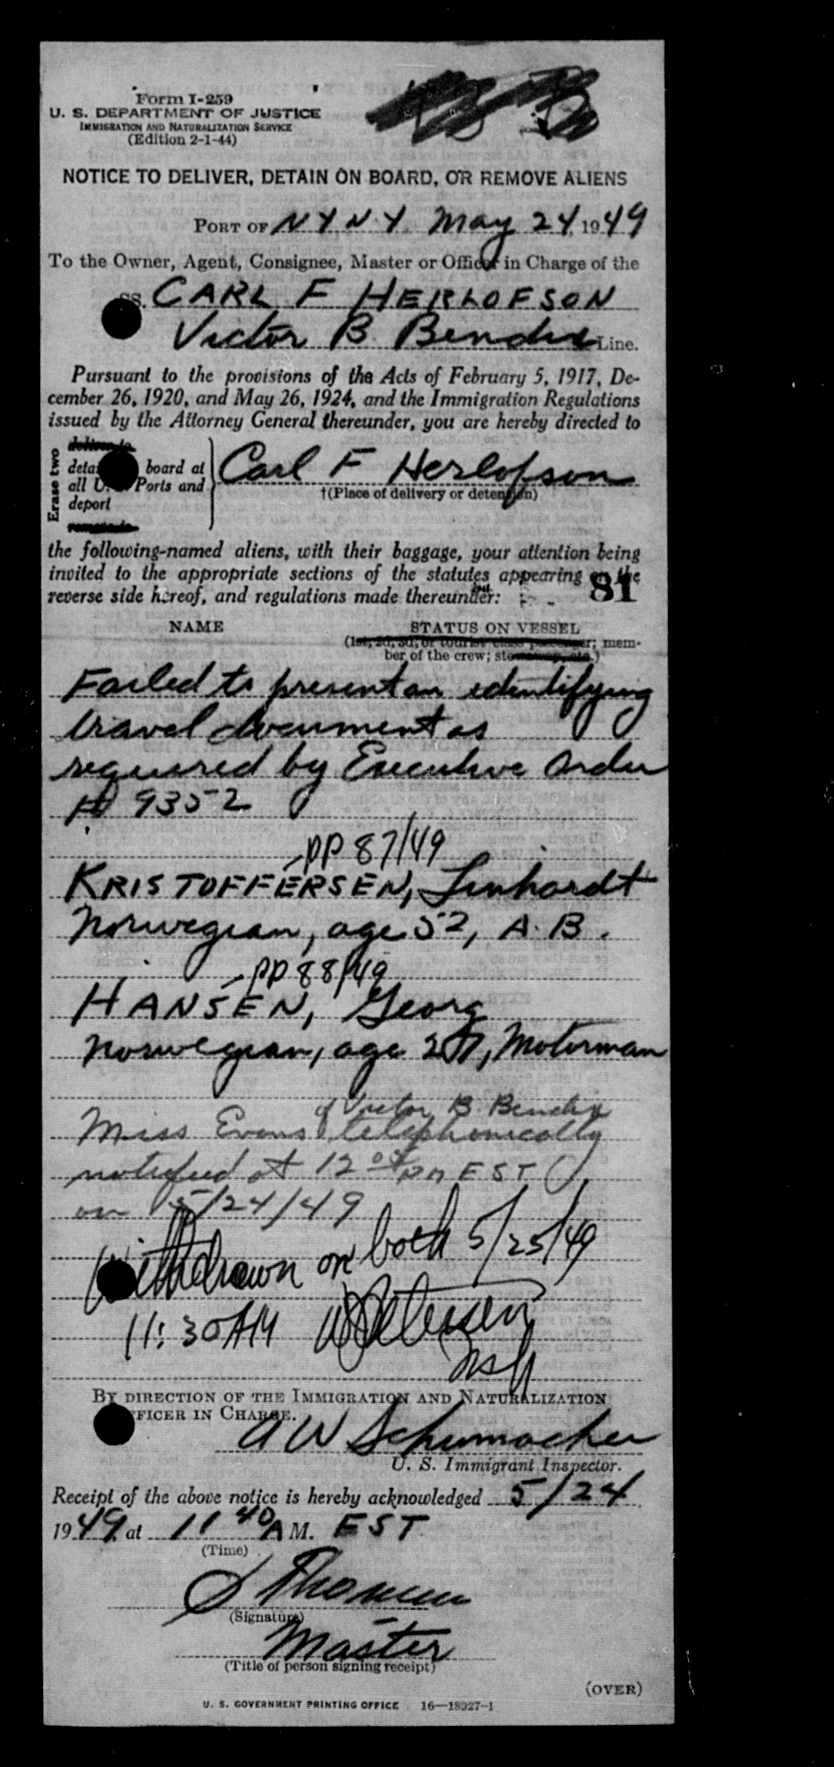 Form I-259
U. S. DEPARTMENT OF JUSTICE
IMMIGRATION AND NATURALIZATION SERVICE
(Edition 2-1-44)
NOTICE TO DELIVER, DETAIN ON BOARD, OR REMOVE ALIENS
PORT OF N Y N Y. May 24, 1949
To the Owner, Agent, Consignee, Master or Officer in Charge of the
SS. CARL F HERLOFSON
Victor B. Bendix Line.
Pursuant to the provisions of the Acts of February 5, 1917, De-
cember 26, 1920, and May 26, 1924, and the Immigration Regulations
issued by the Attorney General thereunder, you are hereby directed to
Erase two
deliver to
board at
all U. Ports and
deport
remove to
Carl F Herlofson
†(Place of delivery or detention)
the following-named aliens, with their baggage, your attention being
invited to the appropriate sections of the statutes appearing on the
reverse side hereof, and regulations made thereunder:
81
NAME STATUS ON VESSEL
(1st, 2d, 3d, or tourist class passenger; mem-
ber of the crew; stowaway, etc.)
Failed to present an identifying
travel document as
required by Executive Order
# 9352
pp 87/49
KRISTOFFERSEN, Linhardt
Norwegian, age 52, A.B.
pp 88/49
HANSEN, Georg
Norwegian, age 27, Motorman
of Victor B Bendix
Miss Evans telephonically
notified at 12 05 PM EST
on 5/24/49
Withdrawn on both 5/25/49
11:30 AM
BY DIRECTION OF THE IMMIGRATION AND NATURALIZATION
OFFICER IN CHARGE.
A W Schumacher
U. S. Immigrant Inspector.
Receipt of the above notice is hereby acknowledged 5/24
1949, at 11 40 A M. EST
(Time)
(Signature)
Master
(Title of person signing receipt)
(OVER)
U. S. GOVERNMENT PRINTING OFFICE 16—18927-1